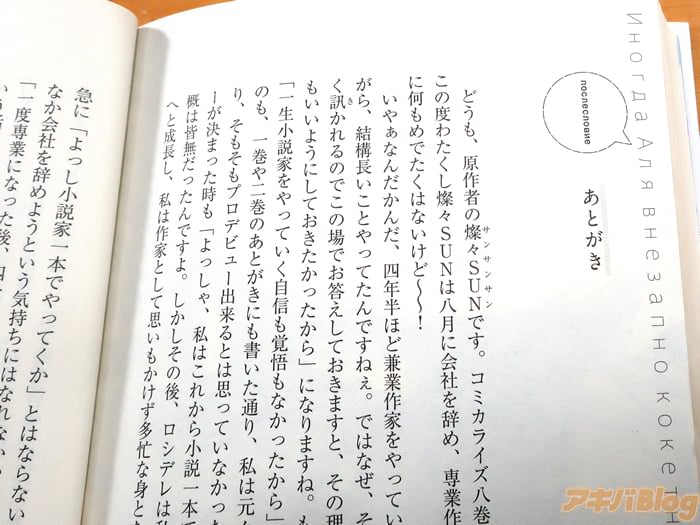 Иногда Аля внезапно кокетн
послесловие
あとがき
どうも、原作者の燦々SUNです。コミカライズ八巻
サンサンサン
この度わたくし燦々SUNは八月に会社を辞め、専業作
に何もめでたくはないけど～～！
いやぁなんだかんだ、四年半ほど兼業作家をやってい
がら、結構長いことやってたんですねぇ。ではなぜ、そ
く訊かれるのでこの場でお答えしておきますと、その理
き
もいいようにしておきたかったから」になりますね。も
「一生小説家をやっていく自信も覚悟もなかったから」
のも、一巻や二巻のあとがきにも書いた通り、私は元々
り、そもそもプロデビュー出来るとは思っていなかった
ーが決まった時も「よっしゃ、私はこれから小説一本で
概は皆無だったんですよ。しかしその後、ロシデレは私
へと成長し、私は作家として思いもかけず多忙な身と
急に「よっし小説家一本でやってくか」とはならない
なか会社を辞めようという気持ちにはなれない
「一度専業になった後、四
アキバBlog